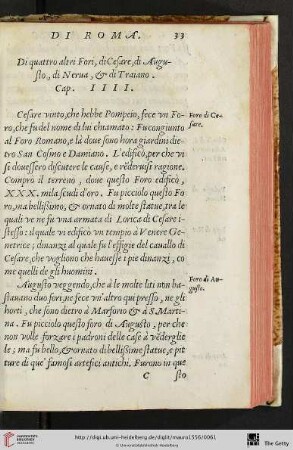 DI ROMA. 33
Di quattro altri Fori, di Cesare, di Augu-
sto, di Nerua, & di Traiano.
Cap. IIII.
Cesare vinto, che hebbe Pompeio, fece vn Fo-
ro, che fu del nome di lui chiamato: Fu congiunto
al Foro Romano, e là doue sono hora giardini die-
tro San Cosmo e Damiano. L'edificò, per che vi
si douessero discutere le cause, e rēderuisi ragione.
Comprò il terreno, doue questo Foro edificò,
XXX. mila scudi d'oro. Fu picciolo questo Fo
ro, ma bellissimo, & ornato di molte statue, tra le
quali ve ne fu vna armata di Lorica di Cesare i-
stesso: il quale vi edificò vn tempio à Venere Ge-
netrice; dinanzi al quale fu l'effigie del cauallo di
Cesare, che vogliono che hauesse i piè dinanzi, co
me quelli de gli huomini.
Foro di Ce-
sare.
Augusto veggendo, che à le molte liti nõ ba-
stauano duo fori, ne fece vn' altro qui presso, ne gli
horti, che sono dietro à Marforio & à S. Marti-
na. Fu picciolo questo foro di Augusto, per che
non volle forzare i padroni delle case à vēderglie
le; ma fu bello, & ornato di bellissime statue, e pit
ture di que' famosi artefici antichi. Furono in que
Foro di Au-
gusto.
C sto
http://digi.ub.uni-heidelberg.de/diglit/mauro1556/0061
© Universitätsbibliothek Heidelberg
UNIVERSITÄTS-
BIBLIOTHEK
HEIDELBERG
The Getty